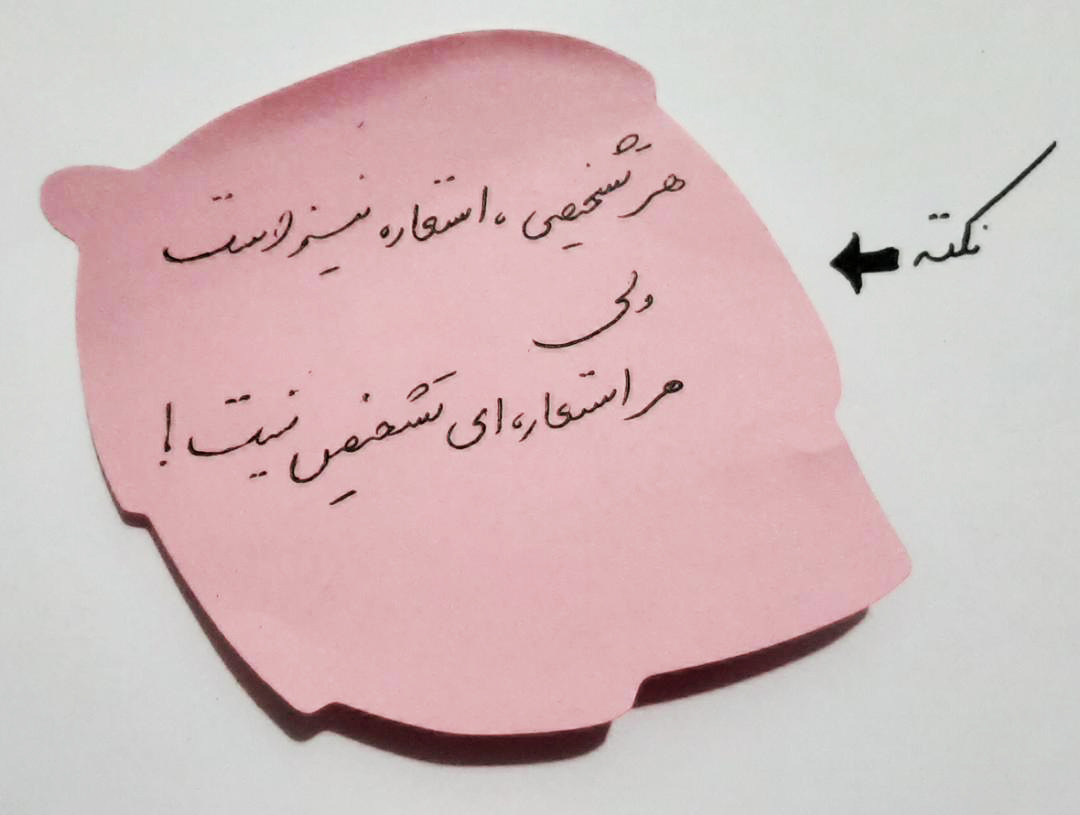 نکته
هر تشخیصی ، استعاره نیز است
ولی
هر استعاره ای تشخیص نیست !